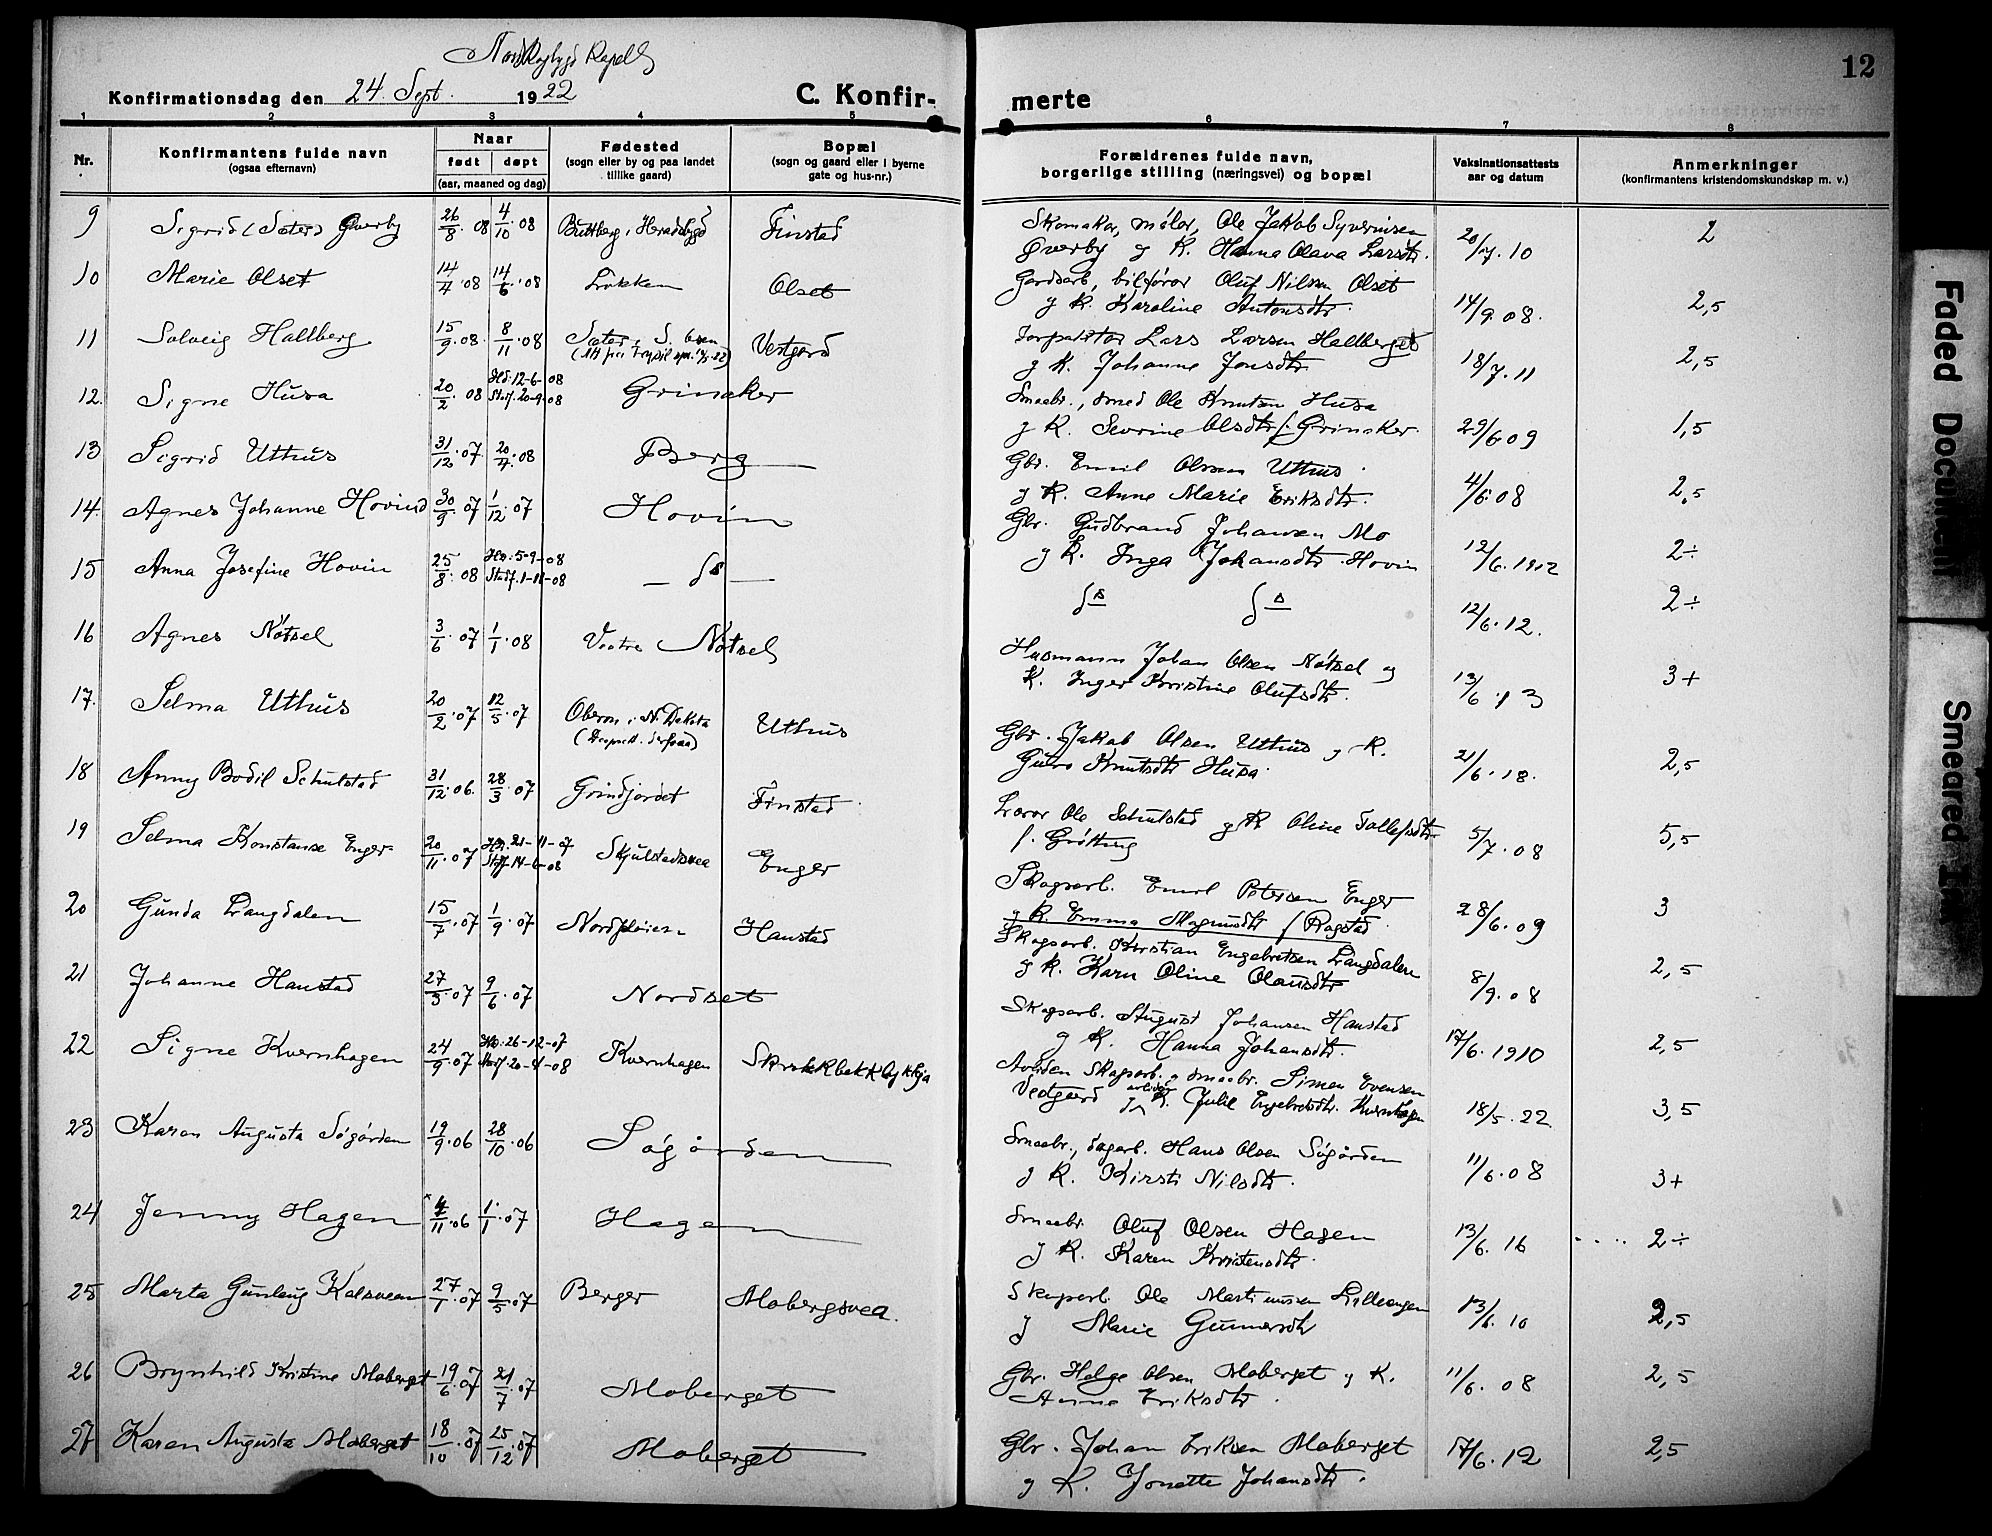 Nordskogbygd Kapell
Konfirmationsdag den 24. Sept. 1922
C. Konfir-
merte
12
1 2 3 4 5 6 7 8
Nr.
Konfirmantens fulde navn
(ogsaa efternavn)
Naar
født døpt
(aar, maaned og dag)
Fødested
(sogn eller by og paa landet
tillike gaard)
Bopæl
(sogn og gaard eller i byerne
gate og hus-nr.)
Forældrenes fulde navn,
borgerlige stilling (næringsvei) og bopæl
Vaksinationsattests
aar og datum
Anmerkninger
(konfirmantens kristendomskundskap m. v.)
9 Sigrid (Sæter) Øverby 26/8. 08 4/10. 08 Buttberg i Heradsbygd Finstad
Skomaker, møler, Ole Jakob Syverinsen
Øverby og K. Hanna Olava Larsdtr. 20/7. 10 2
10 Marie Olset 14/4. 08 14/6. 08 Løkken Olset
Gardsarb, bilfører Oluf Nilsen Olset
og K. Karoline Antonsdtr. 14/9. 08. 2,5
11 Solveig Hallberg 15/9. 08. 8/11. 08 Sæter i S. Osen Vestgard
Torpaktor Lars Larsen Hallberget
og K. Johanne Jonsdtr 18/7. 11 2,5
12. Signe Husa 20/2. 08 Hd. 12-6-08
Stadf. 20-9-08 Grinaker
Smaabr., smed Ole Knutsen Husa
og K. Severine Olsdtr f. Grinaker 29/6 09 1,5
13 Sigrid Uthus 31/12. 07 20/4. 08 Berg
Gbr. Emil Olsen Uthus
og K. Anne Marie Eriksdtr. 4/6. 08 2,5
14. Agnes Johanne Hovind 30/9. 07 1/12. 07 Hovin
Gbr. Gudbrand Johansen Mo
og K. Inga Johansdtr Hovin 12/6. 1912 2÷
15 Anna Josefine Hovin 25/8. 08 Hd. 5-9-08
Stadf. 1-11-08 — ds —
ds ds 12/6. 12. 2÷
16 Agnes Nøtsel 3/6. 07 1/1. 08 Vestre Nøtsel
Husmann Johan Olsen Nøtsel og
K. Inger Kristine Olufsdtr. 13/6. 13 3+
17. Selma Uthus 20/2. 07 12/5. 07 Oberon i N. Dakota Uthus
Gbr. Jakob Olsen Uthus og K.
Guro Knutsdtr Husa. 21/6. 18. 2,5
18 Anny Bodil Schulstad 31/12. 06. 28/3. 07 Grindjordet Finstad
Lærer Ole Schulstad og K Oline Tollefsdtr
f. Grøtting 5/7. 08 5,5
19 Selma Konstanse Enger 20/11. 07 Hd. 21-11-07
Stadf. 14-6-08 Skjulstadsvea Enger
Skogsarb. Emil Petersen Enger
og K. Emma Magnusdtr f. Rogstad. 28/6. 09 3
20 Gunda Langdalen 15/7. 07 1/9. 07 Nordfløien Hanstad
Skogsarb. Kristian Engebretsen Langdalen
og K. Karn Oline Olausdtr 8/9. 08 2,5
21 Johanne Hanstad 27/3. 07 9/6. 07 Nordset
Skogsarb. August Johansen Hanstad
og K. Hanna Johansdtr. 17/6. 1910 2,5
22 Signe Kvernhagen 24/9. 07 Hd. 26-12-07
Stadf. 20-4-08 Kvernhagen
Avliden Skogsarb. og smaabr. Simen Evensen
Vestgard og avliden K. Julie Engebretsdtr. Kvernhagen 18/5. 22 3,5
23 Karen Augusta Søgården 19/9. 06 28/10. 06 Søgården
Smaabr., dagarb. Hans Olsen Søgården
og K. Kirsti Nilsdtr. 11/6. 08 3+
24 Jenny Hagen 4/11. 06 1/1. 07 Hagen
Smaabr. Oluf Olsen Hagen
og K. Karen Kristensdtr. 13/6. 16 .... 2÷
25 Marta Gunlaug Kolsveen 27/1. 07 9/5. 07 Berger Mobergsvea.
Skogsarb. Ole Martinusen Lilleengen
og Marie Gunnarsdtr 13/6. 10 2,5
26 Brynhild Kristine Moberget 19/6. 07 21/7. 07 Moberget
Gbr. Helge Olsen Moberget og K.
Anne Eriksdtr. 11/6. 08 2,5
27 Karen Augusta Moberget 18/10. 07 25/12. 07 Moberget
Gbr. Johan Eriksen Moberget
og K. Jonette Johansdtr. 17/6. 12 2,5
Faded Document
Smeared Ink